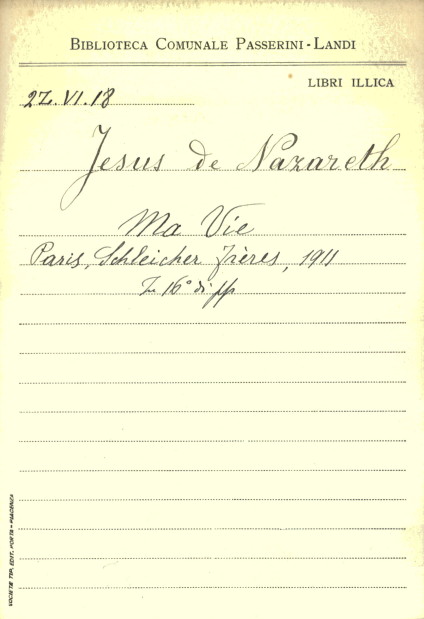 BIBLIOTECA COMUNALE PASSERINI-LANDI
LIBRI ILLICA
2Z.VI.18
Jesus de Nazareth
Ma Vie
Paris, Schleicher Frères, 1911
In 16° di pp
SOCIETÀ TIP. EDIT. PORTA - PIACENZA